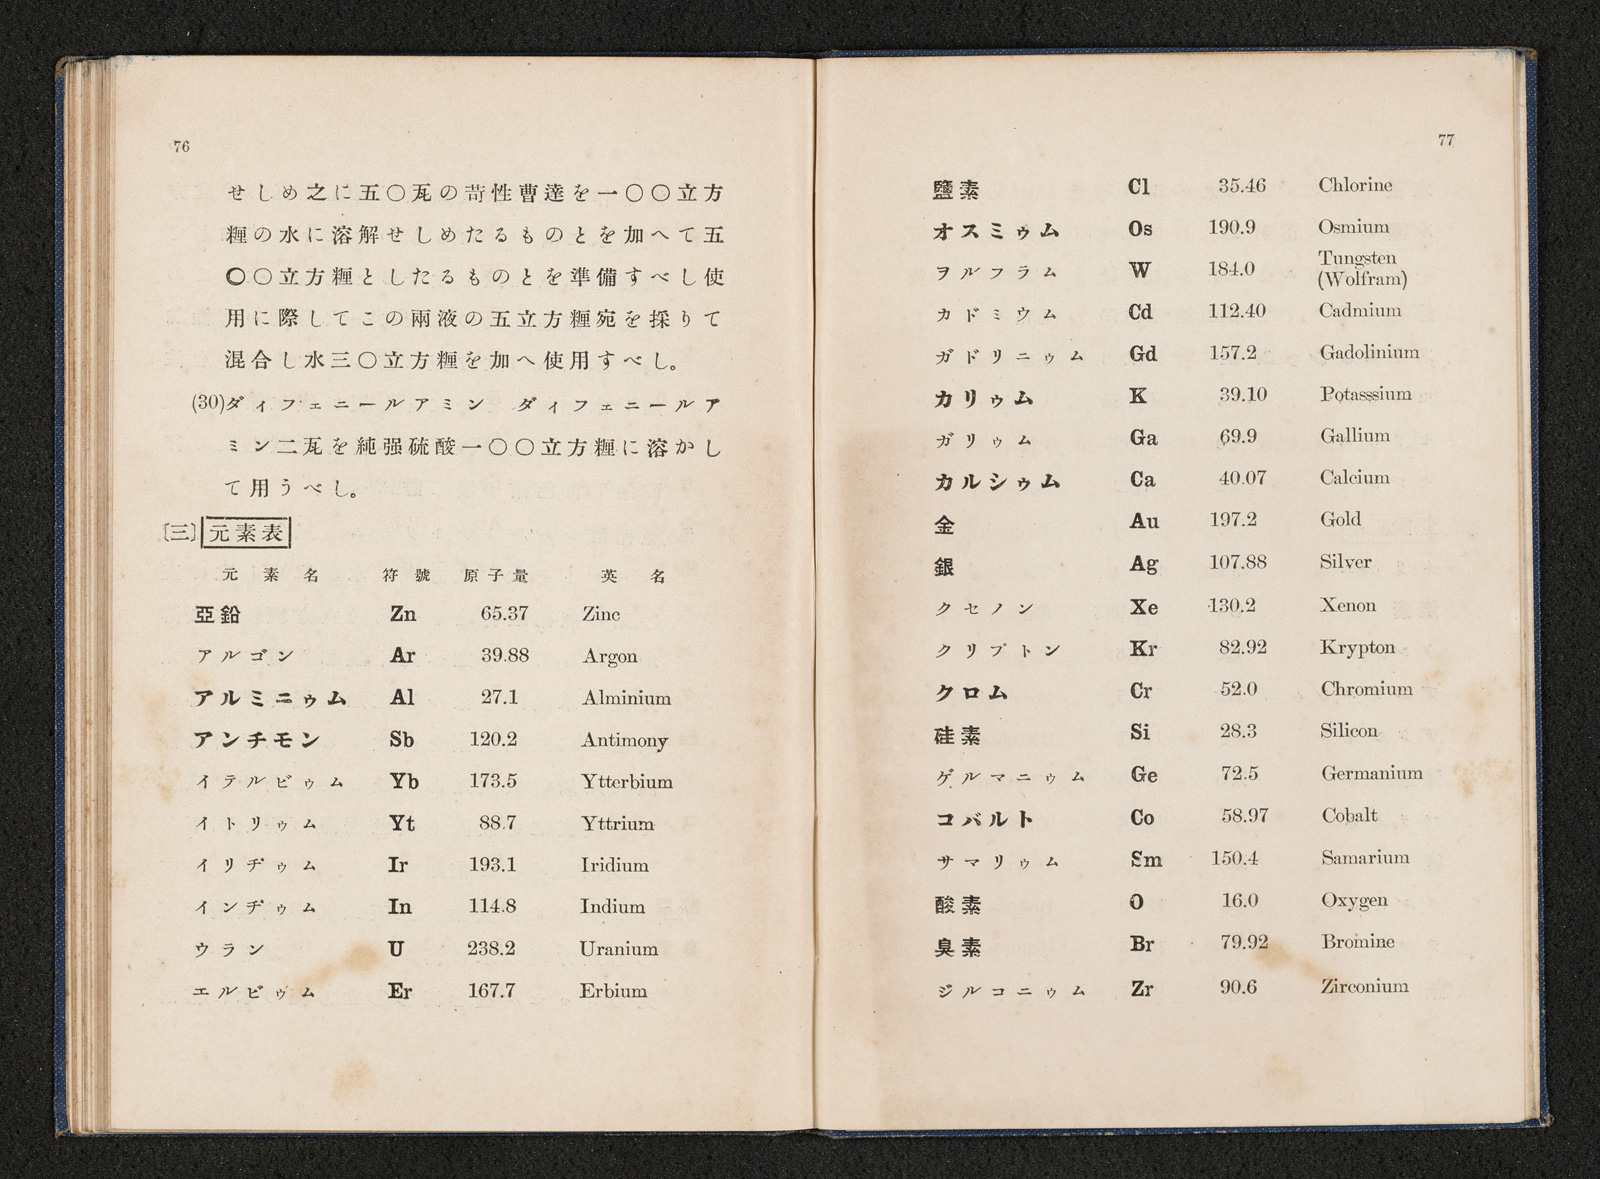 76
せしめ之に五〇瓦の苛性曹達を一〇〇立方
糎の水に溶解せしめたるものとを加へて五
〇〇立方糎としたるものとを準備すべし使
用に際してこの兩液の五立方糎宛を採りて
混合し水三〇立方糎を加へ使用すべし。
(30)ダィフェニールアミン ダィフェニールア
ミン二瓦を純强硫酸一〇〇立方糎に溶かし
て用うべし。
〔三〕元素表
元素名 符號 原子量 英名
亞鉛 Zn 65.37 Zinc
アルゴン Ar 39.88 Argon
アルミニゥム Al 27.1 Alminium
アンチモン Sb 120.2 Antimony
イテルビゥム Yb 173.5 Ytterbium
イトリゥム Yt 88.7 Yttrium
イリヂゥム Ir 193.1 Iridium
インヂゥム In 114.8 Indium
ウラン U 238.2 Uranium
エルビゥム Er 167.7 Erbium
77
鹽素 Cl 35.46 Chlorine
オスミゥム Os 190.9 Osmium
ヲルフラム W 184.0 Tungsten
(Wolfram)
カドミウム Cd 112.40 Cadmium
ガドリニゥム Gd 157.2 Gadolinium
カリゥム K 39.10 Potasssium
ガリゥム Ga 69.9 Gallium
カルシゥム Ca 40.07 Calcium
金 Au 197.2 Gold
銀 Ag 107.88 Silver
クセノン Xe 130.2 Xenon
クリプトン Kr 82.92 Krypton
クロム Cr 52.0 Chromium
硅素 Si 28.3 Silicon
ゲルマニゥム Ge 72.5 Germanium
コバルト Co 58.97 Cobalt
サマリゥム Sm 150.4 Samarium
酸素 O 16.0 Oxygen
臭素 Br 79.92 Bromine
ジルコニゥム Zr 90.6 Zirconium